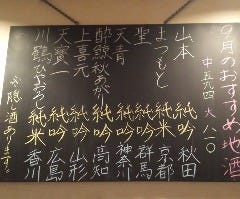 9月のおすすめ地酒
中五九四 大八一〇
山本 純吟 秋田
よつもと 純米 京都
聖 純吟 群馬
天青 純吟 神奈川
酔鯨秋あがり 純吟 高知
上喜元 純吟 山形
天寶一 純吟 広島
川鶴ひやおろし 純米 香川
隠し酒あります。